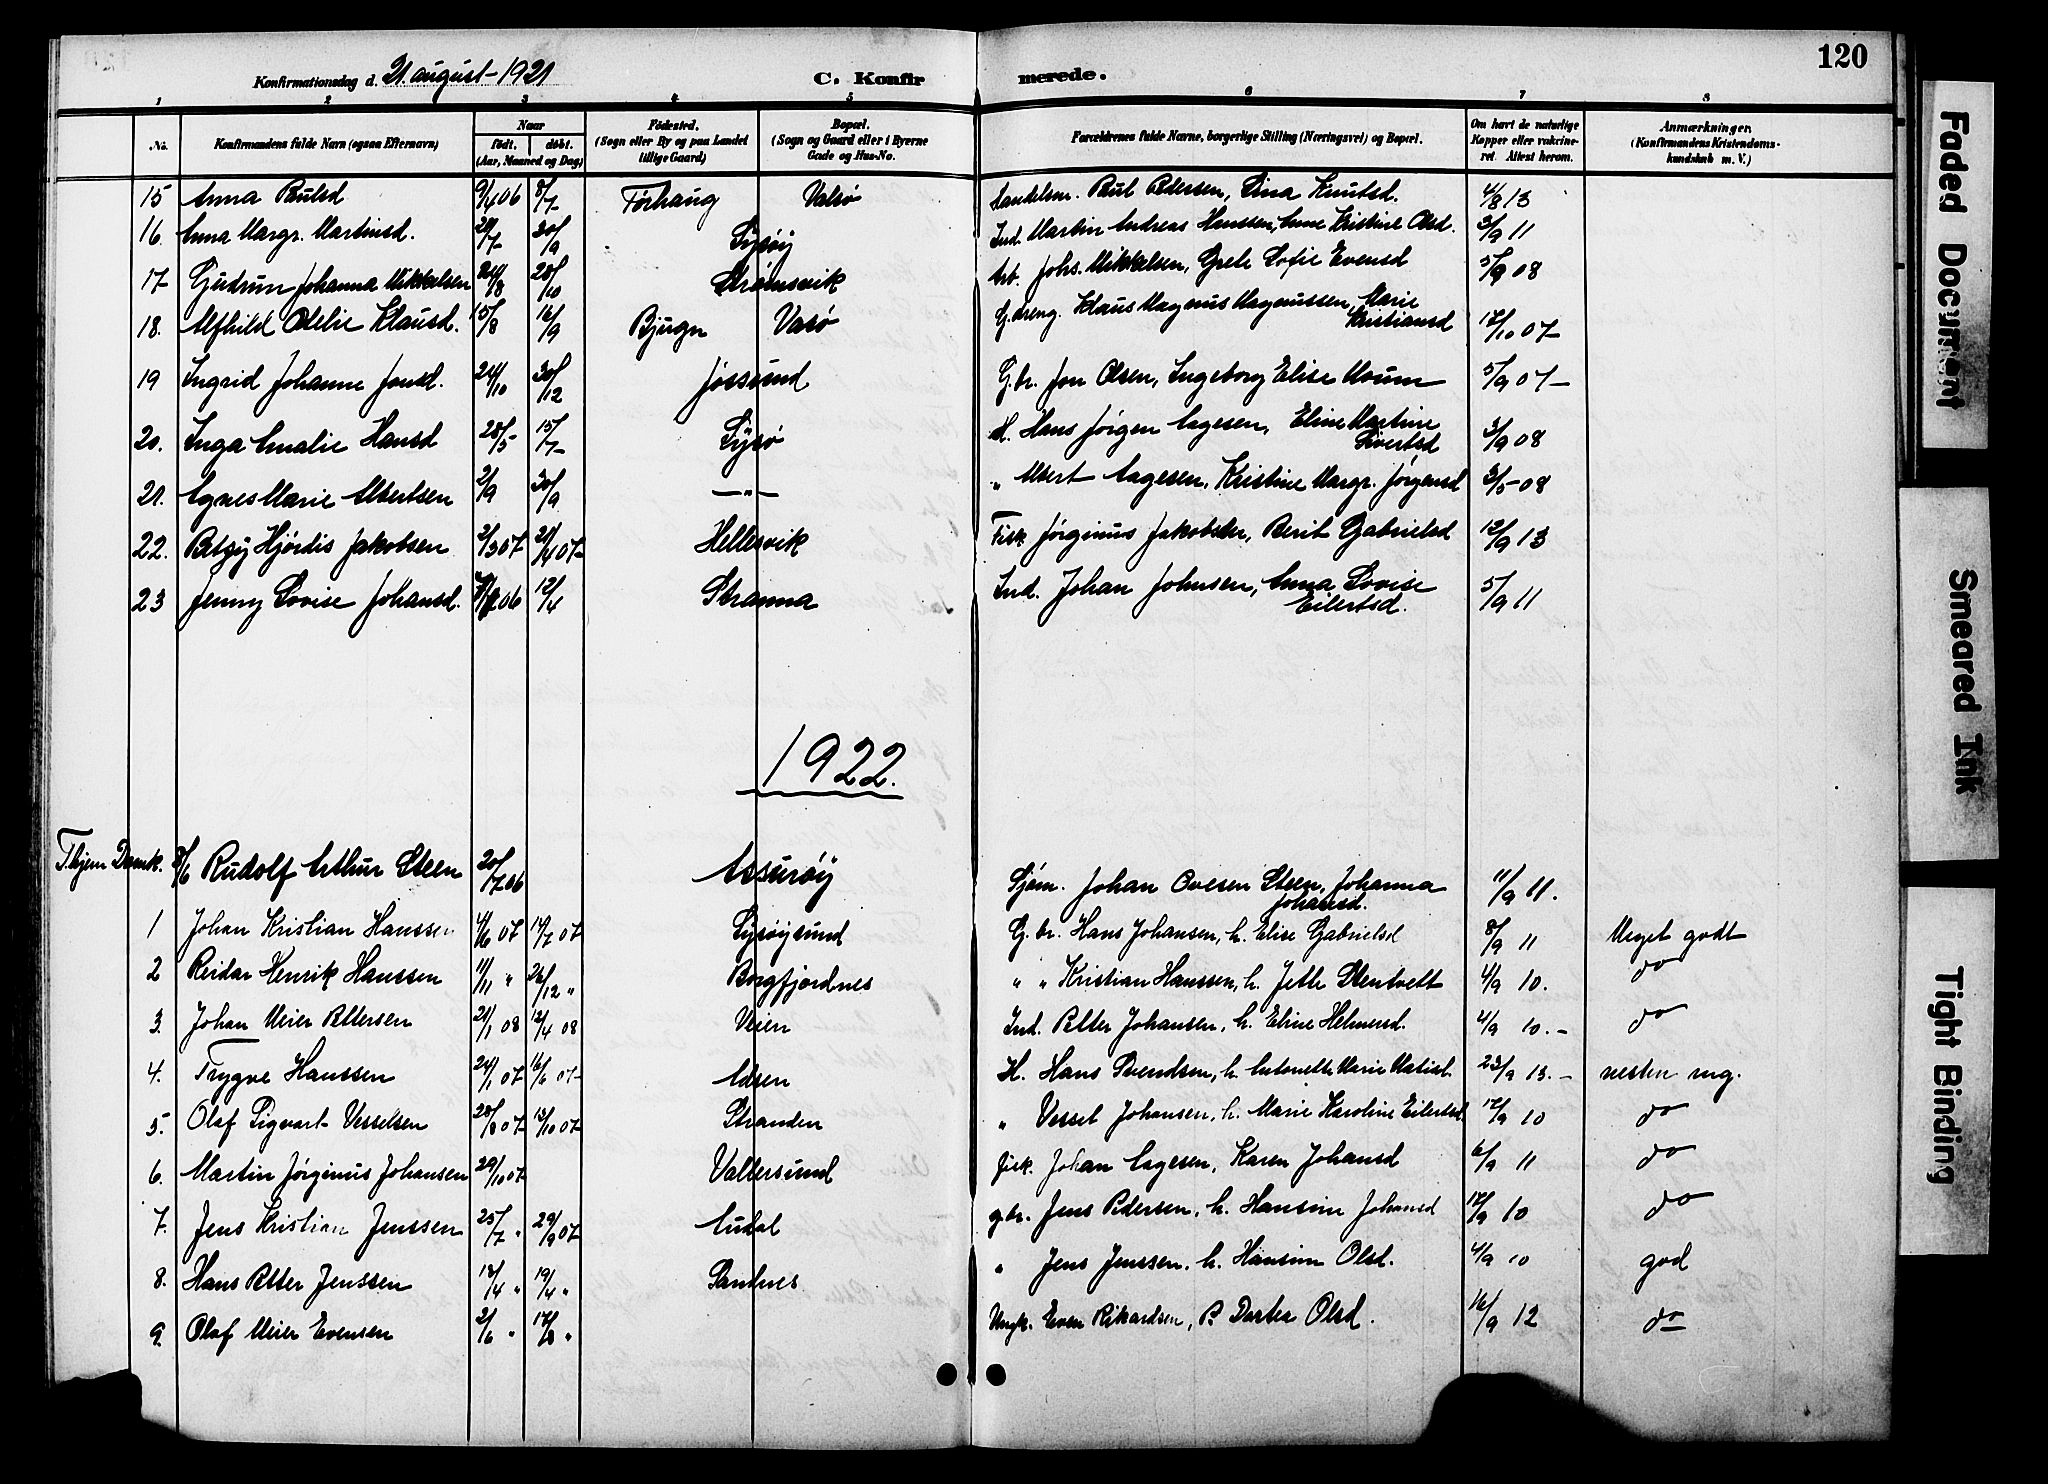 120
Konfirmationsdag d. 21. august - 1921 C. Konfirmerede.
1 2 3 4 5 6 7 8
No. Konfirmandens fulde Navn (ogsaa Efternavn) Naar født. døbt. (Aar, Maaned og Dag) Fødested. (Sogn eller By og paa Landet tillige Gaard) Bopæl. (Sogn og Gaard eller i Byerne Gade og Hus-No. Forældrenes fulde Navne, borgerlige Stilling (Næringsvei) og Bopæl. Om havt de naturlige Kopper eller vakcineret. Attest herom. Anmærkninger. (Konfirmandens Kristendomskundskab m. V.)
15 Anna Paulsd 9/4 06 8/7 Tørhaug Valsø Handelsm. Paul Pedersen, Lina Knutsd. 4/8 13
16. Anna Margr. Martinsd. 29/7 30/9 Lysøy Ind. Martin Andreas Hanssen, Anne Kristine Olsd. 3/9 11
17 Gudrun Johanna Mikkelsen 24/8 28/10 Strømsvik Arb. Johs. Mikkelsen, Grete Sofie Evensd 5/9 08
18. Alfhild Odelie Klausd. 15/8 16/9 Bjugn Vasø G.dreng. Klaus Magnus Magnussen, Marie Kristiansd 17/10 07
19 Ingrid Johanne Jonsd. 24/10 30/12 Jøssund G.br. Jon Olsen, Ingeborg Elise Moum 5/9 07
20. Inga Amalie Hansd 28/5 15/7 Lysø H. Hans Jørgen Aagesen, Eline Martine Sivertsd 3/9 08
21. Agnes Marie Albertsen 2/9 30/9 — " — " Albert Aagesen, Kristine Margr. Jørgensd 3/5 08
22. Betzy Hjørdis Jakobsen 2/3 07 21/4 07 Hellesvik Fisk Jørginus Jakobsen, Berit Gabrielsd 12/9 13
23 Jenny Lovise Johansd. 06 12/4 Stranna Ind. Johan Johnsen, Anna Lovise Eilertsd. 5/9 11
1922.
T.hjem Domk. 8/6 Rudolf Arthur Steen 20/7 06 Assurøy Sjøm. Johan Ovesen Steen, Johanna Johansd. 11/9 11.
1 Johan Kristian Hanssen 4/6 07 14/7 07 Lysøysund G.br. Hans Johansen, h. Elise Gabrielsd 8/9 11 Meget godt
2 Reidar Henrik Hanssen 11/11 " 26/12 " Borgfjordnes " " Kristian Hanssen, h. Jette Stentvett 4/9 10. do
3. Johan Meier Pettersen 21/1 08 12/4 08 Veien Ind. Petter Johansen, h. Eline Helmersd. 4/9 10. - do
4. Trygve Hanssen 24/1 07 16/6 07 Adsen H. Hans Svendsen, h. Antonette Marie Matisd. 23/9 13. - nesten mg.
5. Olaf Sigvart Vesselsen 28/8 07 13/10 07 Stranden " Vessel Johansen, h. Marie Karoline Eilertsd 17/9 10 do
6. Martin Jørginus Johansen 29/10 07 Valtersund fisk. Johan Aagesen, Karen Johansd 6/9 11 do
7. Jens Kristian Jenssen 25/7 " 29/9 07 Audal g.br. Jens Pedersen, h. Hansine Johansd 17/9 10 do
8. Hans Petter Jenssen 13/4 " 19/4 " Sandnes " Jens Jenssen, h. Hansine Olsd. 4/9 10 god
9 Olaf Meier Evensen 2/6 " 17/8 " Ungk. Even Rikardsen, P. Dortea Olsd. 16/9 12 do
Faded Document
Smeared Ink
Tight Binding